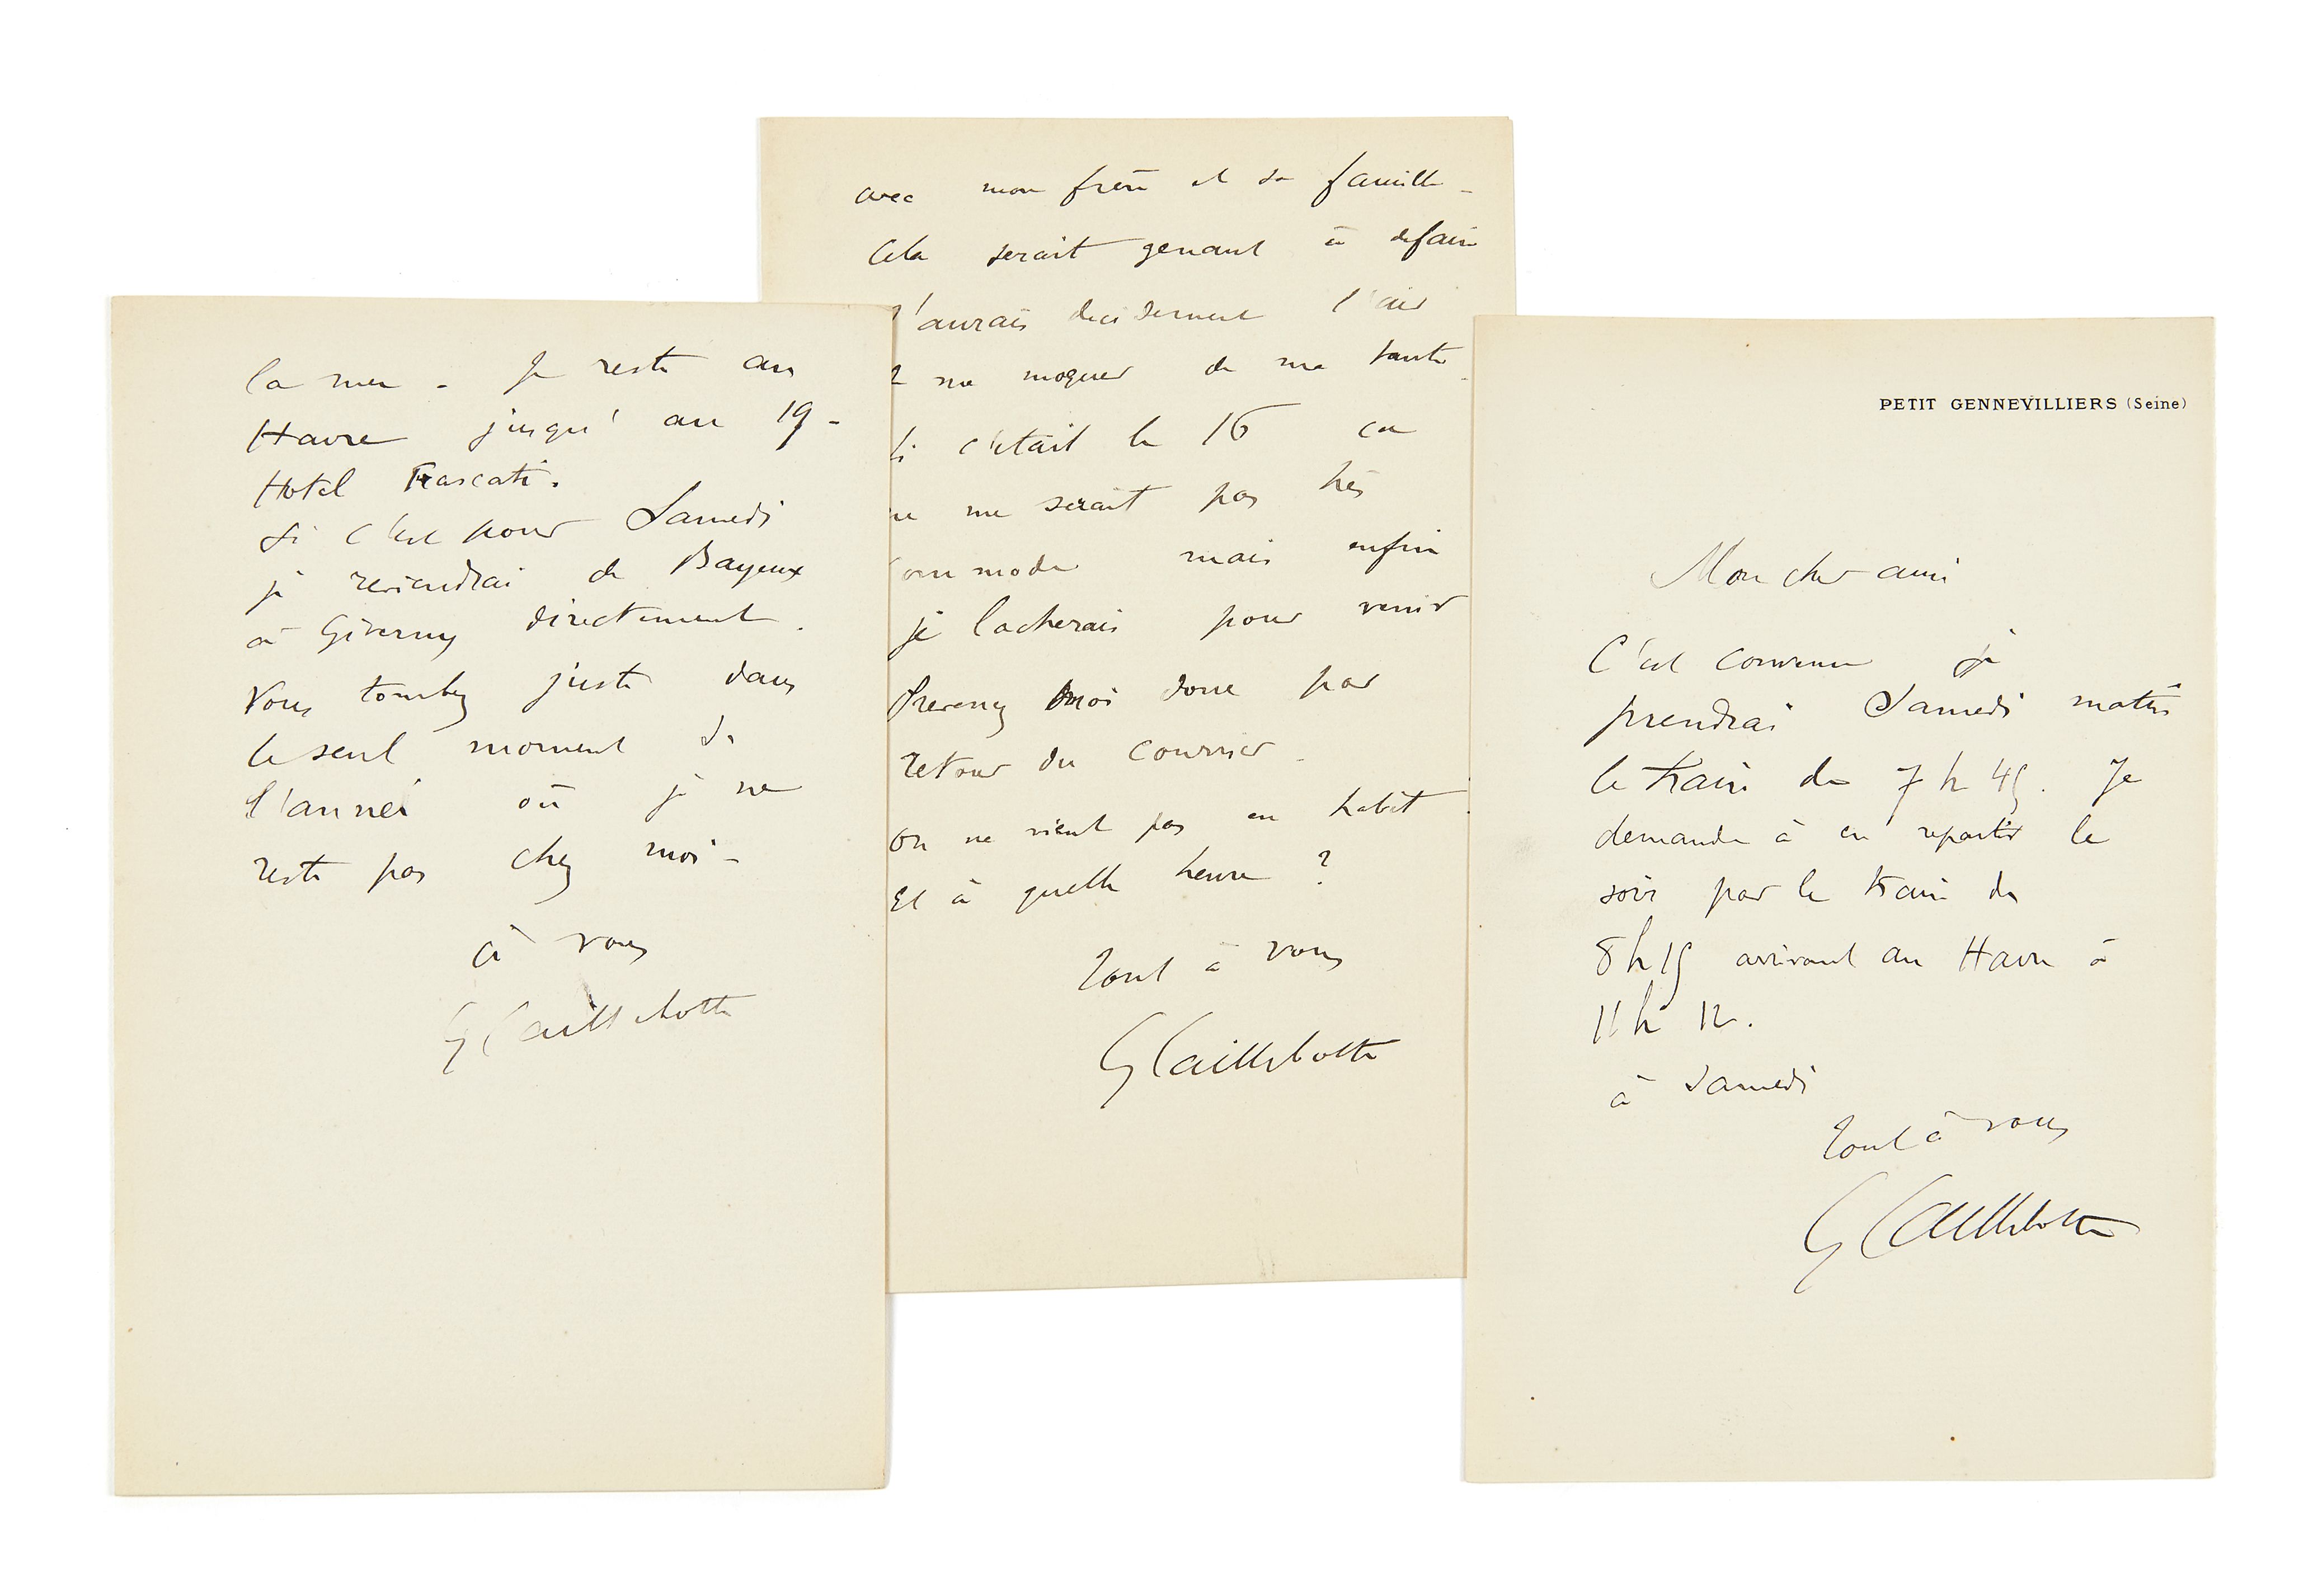 la mer - Je reste au
Havre jusqu'au 19 -
Hotel Frascati.
Si c'est pour Samedi
je reviendrai de Bayeux
à Giverny directement.
Vous tombez juste dans
le seul moment de
l'année où je ne
reste pas chez moi -
à vous
G Caillebotte
avec mon frère et sa famille -
Cela serait genant à defaire
J'aurais decidement l'air
de me moquer de ma tante.
Si c'était le 16 ca
ne me serait pas très
commode mais enfin
je lacherais pour venir
Prevenez moi donc par
retour du courrier.
On ne vient pas en habit
Et à quelle heure ?
Tout à vous
G Caillebotte
PETIT GENNEVILLIERS (Seine)
Mon cher ami
C'est convenu je
prendrai Samedi matin
le train de 7 h 45. Je
demande à en repartir le
soir par le train de
8 h 15 arrivant au Havre à
11 h 12.
à Samedi
Tout à vous
G Caillebotte